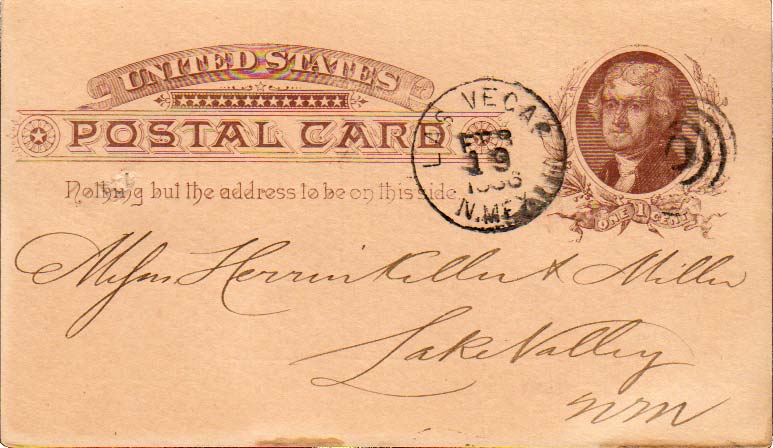 UNITED STATES
POSTAL CARD
Nothing but the address to be on this side.
LAS VEGAS
FEB
19
N.MEX.
ONE 1 CENT
Messrs Herrin Keller & Miller
Lake Valley
NM